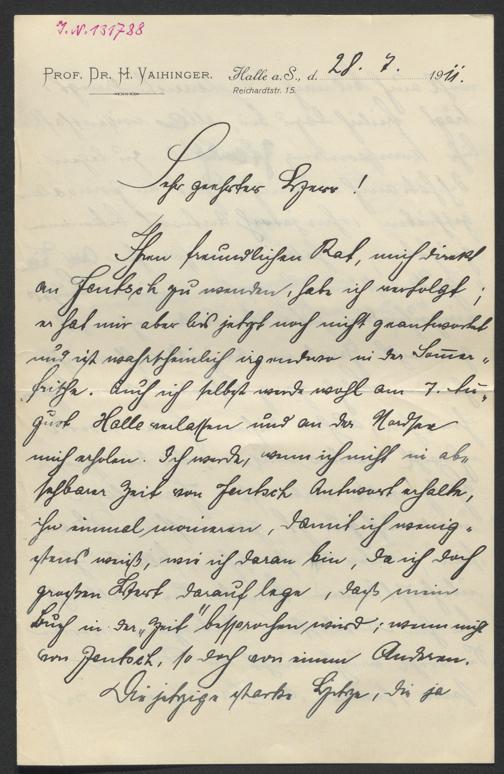 I.N. 131788
PROF. DR. H. VAIHINGER. Halle a. S., d. 28. 7. 1911.
Reichardtstr. 15.
Sehr geehrter Herr!
Ihren freundlichen Rat, mich direkt
an Jentsch zu wenden, habe ich verfolgt;
er hat mir aber bis jetzt noch nicht geantwortet
und ist wahrscheinlich irgendwo in der Sommer-
frische. Auch ich selbst werde wohl am 7. Au-
gust Halle verlassen und an der Nordsee
mich erholen. Ich werde, wenn ich nicht in ab-
sehbarer Zeit von Jentsch Antwort erhalte,
ihn einmal monieren, damit ich wenig-
stens weiß, wie ich daran bin, da ich doch
großen Wert darauf lege, daß mein
Buch in der „Zeit" besprochen wird; wenn nicht
von Jentsch, so doch von einem Anderen.
Die jetzige starke Hitze, die ja